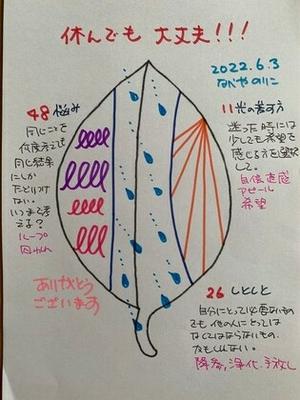 休んでも 大丈夫!!!
2022.6.3
48 悩み
同じことを
何度考えても
同じ結果
にしか
たどりつけ
ない。
いつまで考
える?
ループ
ありがとう
ございます
11 光の差す方
迷った時には
少しでも希望を
感じる方を選択
して。
自信、直感
アピール
希望
26 しとしと
自分にとっては必要ないもの
でも他の人にとっては
なくてはならないもの
かもしれない。
降参,浄化,手放し